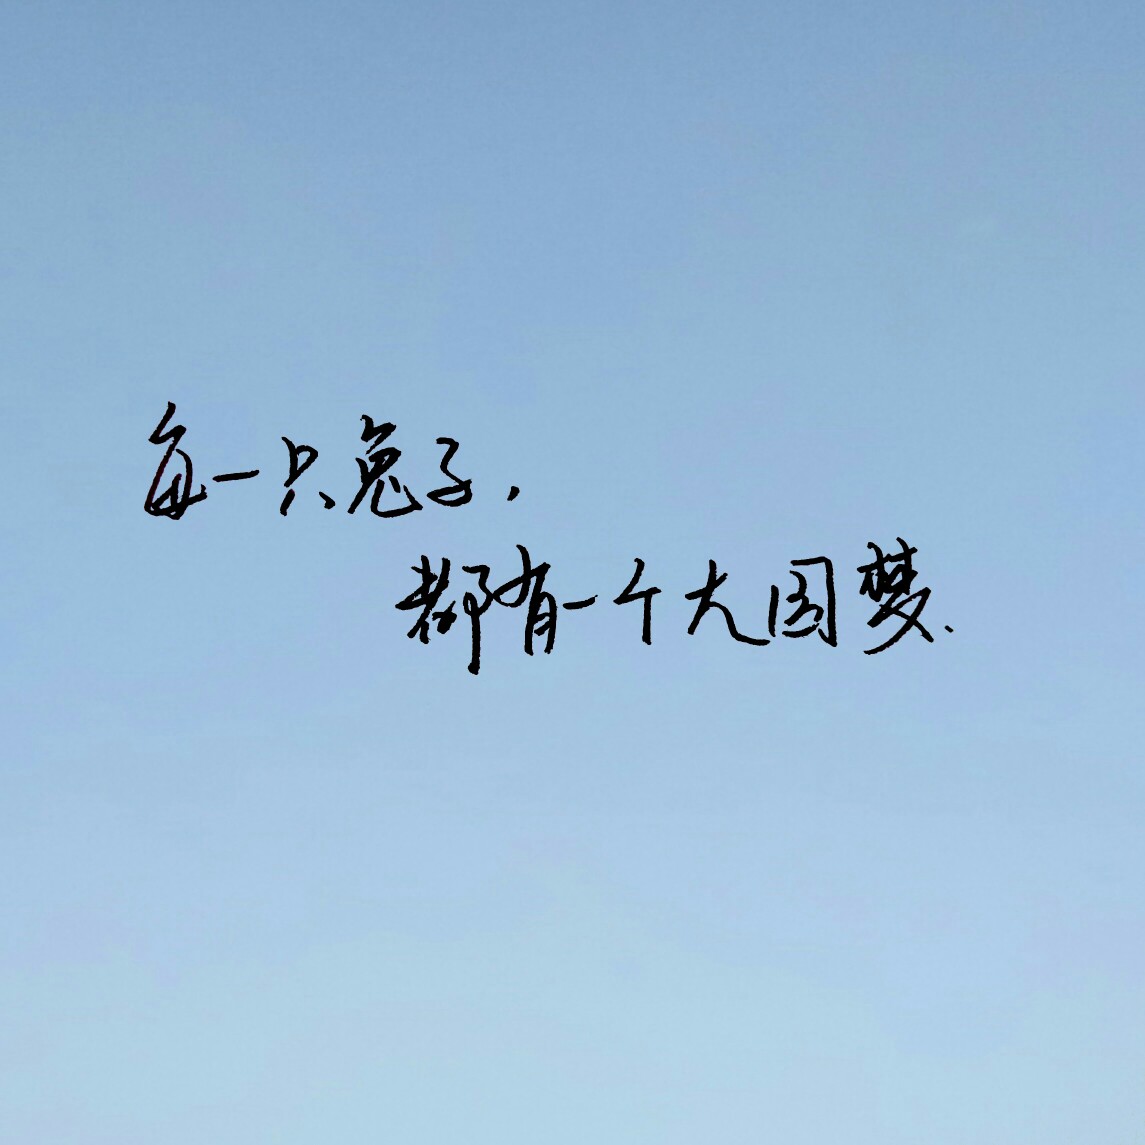 每一只兔子，
都有一个大国梦.